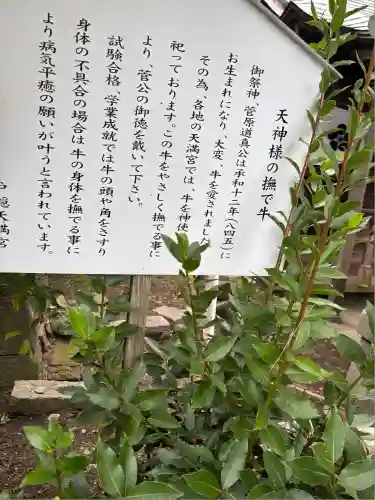 天神様の撫で牛
御祭神 菅原道真公は承和十二年(八四五)に
お生まれになり、大変、牛を愛されました
その為、各地の天満宮では、牛を神使
祀っております。この牛をやさしく撫でる事に
より、菅公の御徳を戴いて下さい。
試験合格、学業成就では牛の頭や角をさすり
身体の不具合の場合は牛の身体を撫でる事に
より病気平癒の願いが叶うと言われています。
隠天満宮